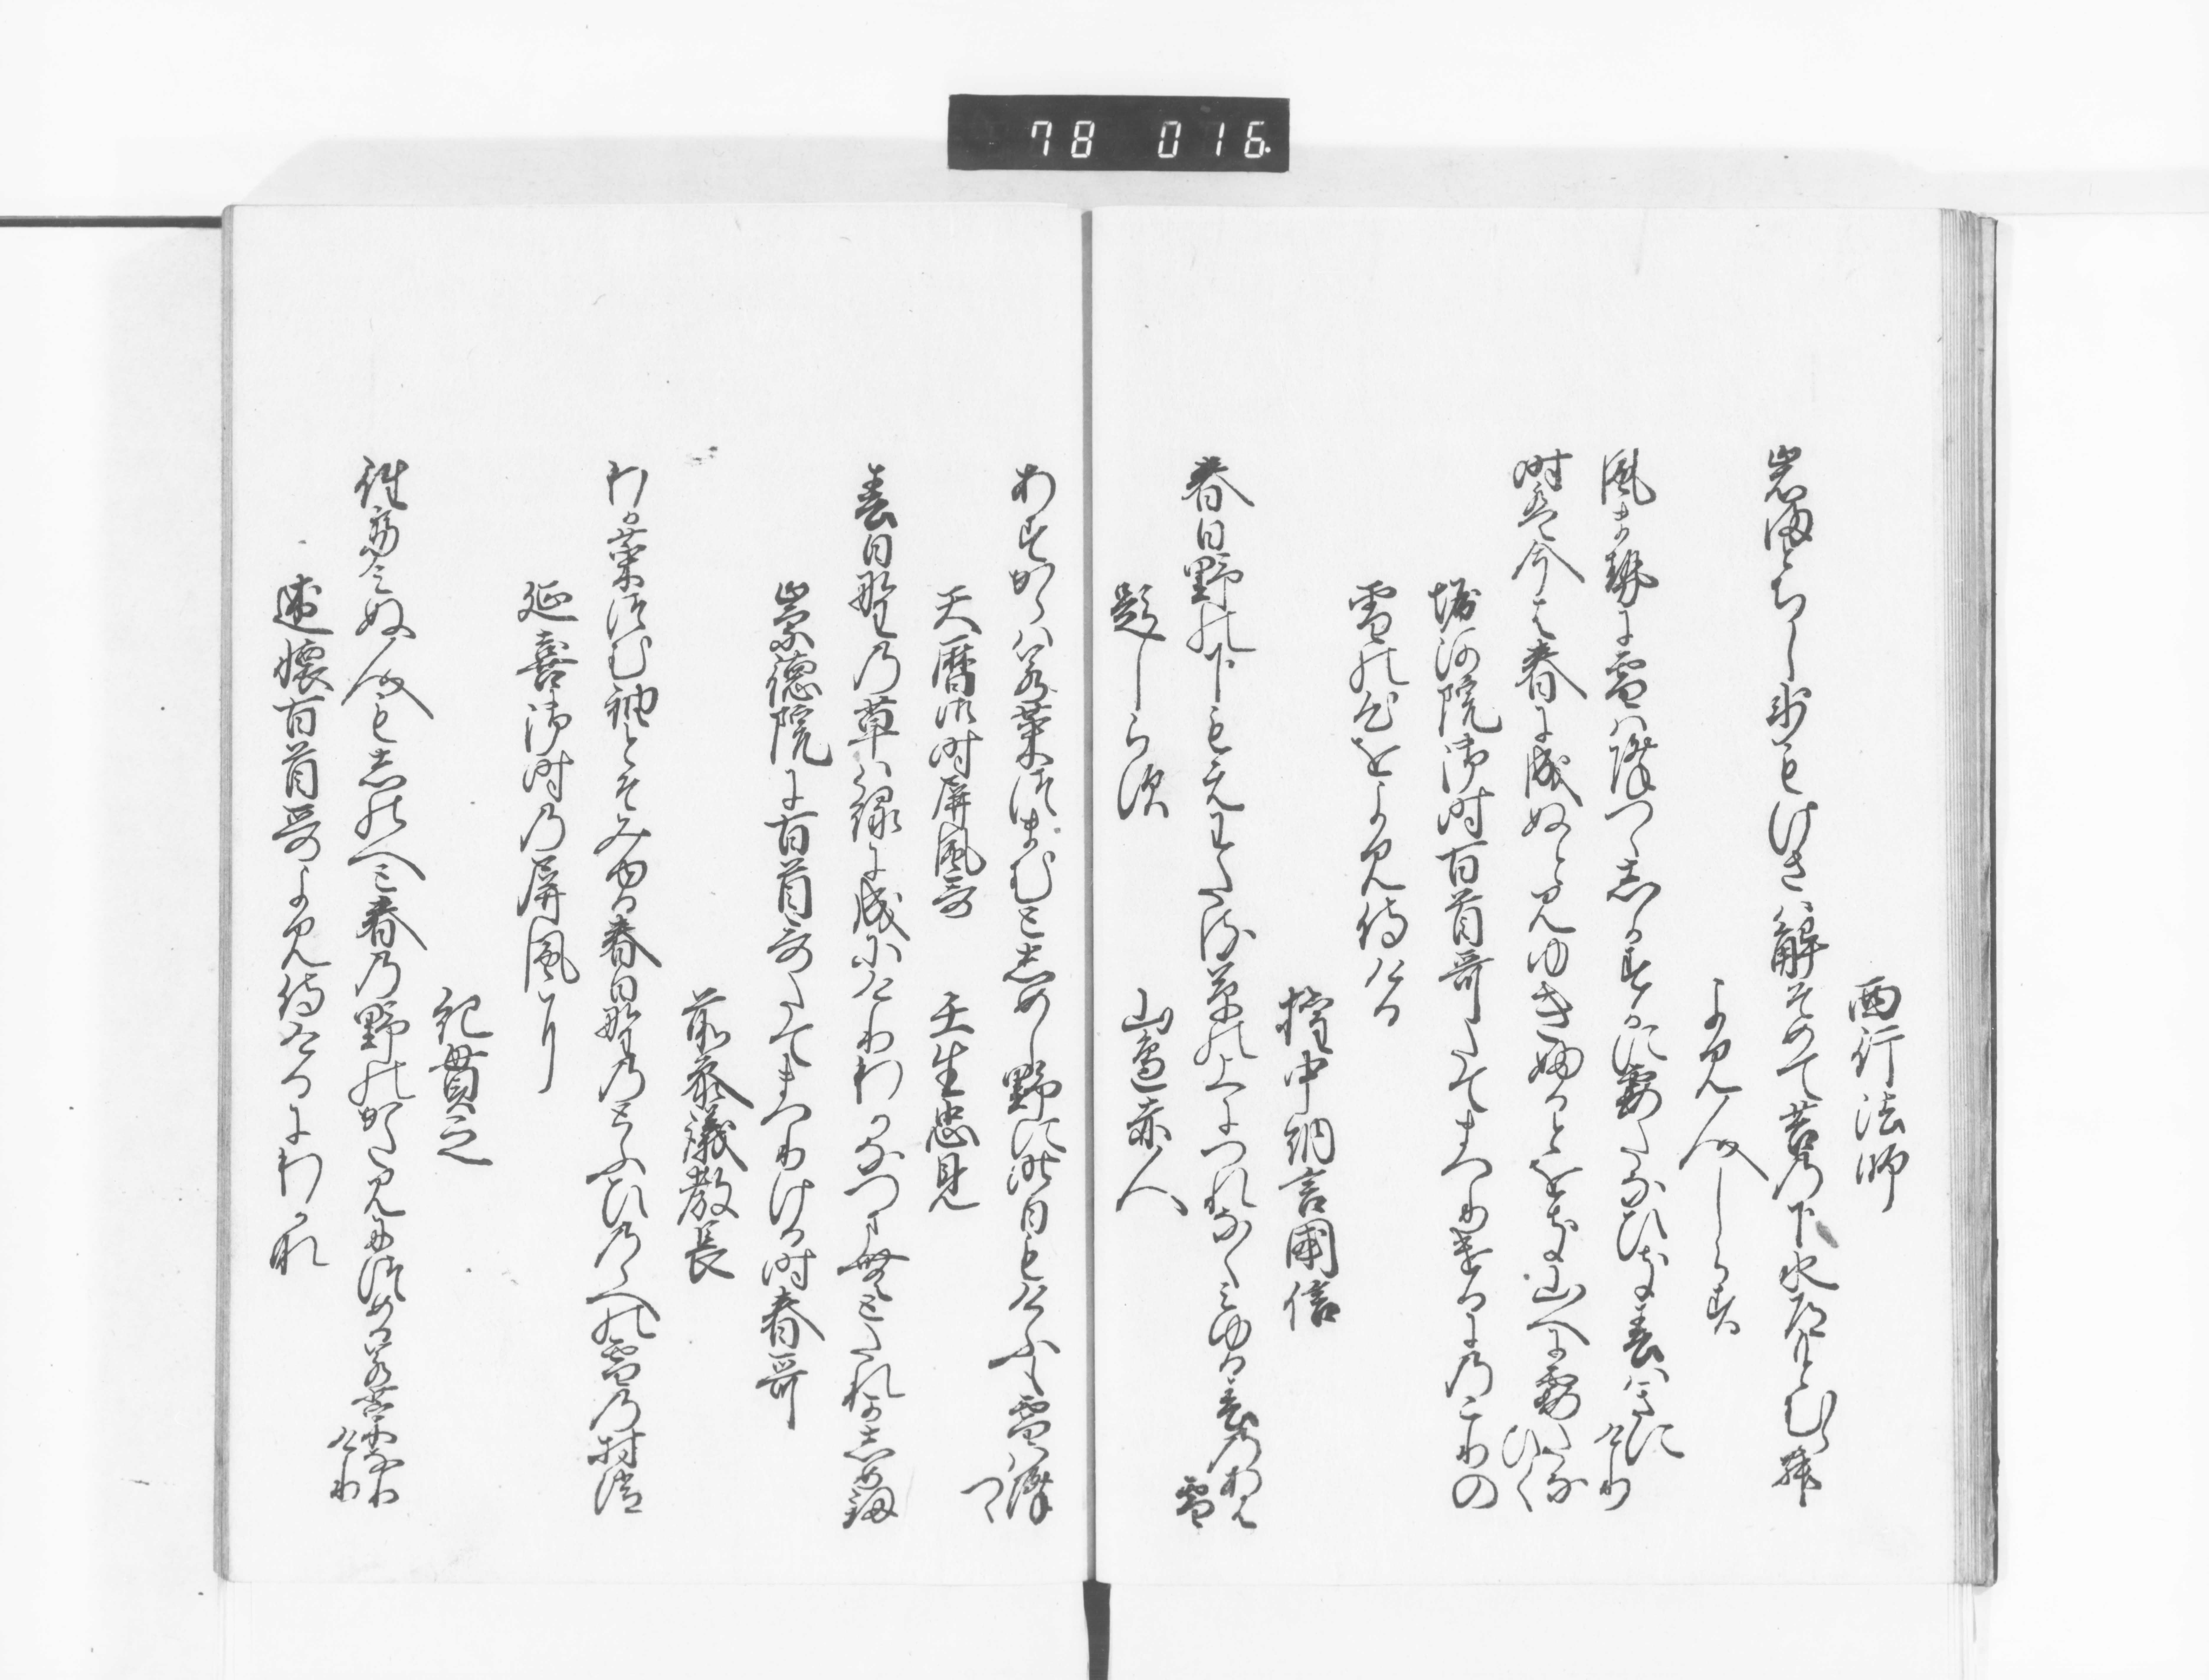 78 016
西行法師
岩間とちし氷もけさは解そめて苔の下水道もとむ覧
よみ人しらす
風ませに雪は降つゝしかすかに霞たなひき春はきにけり
時は今は春に成ぬとみゆきふるとをき山へに霞たなひく
堀河院御時百首哥たてまつりけるにのこりの
雪の心をよみ侍ける
権中納言国信
春日野の下もえわたる草の上につれなくみゆる春のあは雪
題しらす
山邊赤人
あすからは若菜つまむとしめし野に昨日もけふも雪は降つゝ
天暦御時屏風哥
壬生忠見
春日野の草は緑に成にけりわかなつまむとたれかしめ釼
崇徳院に百首哥たてまつりける時春哥
前参議教長
わかなつむ袖とそみゆる春日野のとふひのゝへの雪の村消
延喜御時の屏風に
紀貫之
行て見ぬ人もしのへと春の野のかたみにつめる若菜なりけり
述懐百首哥よみ侍けるにわかな